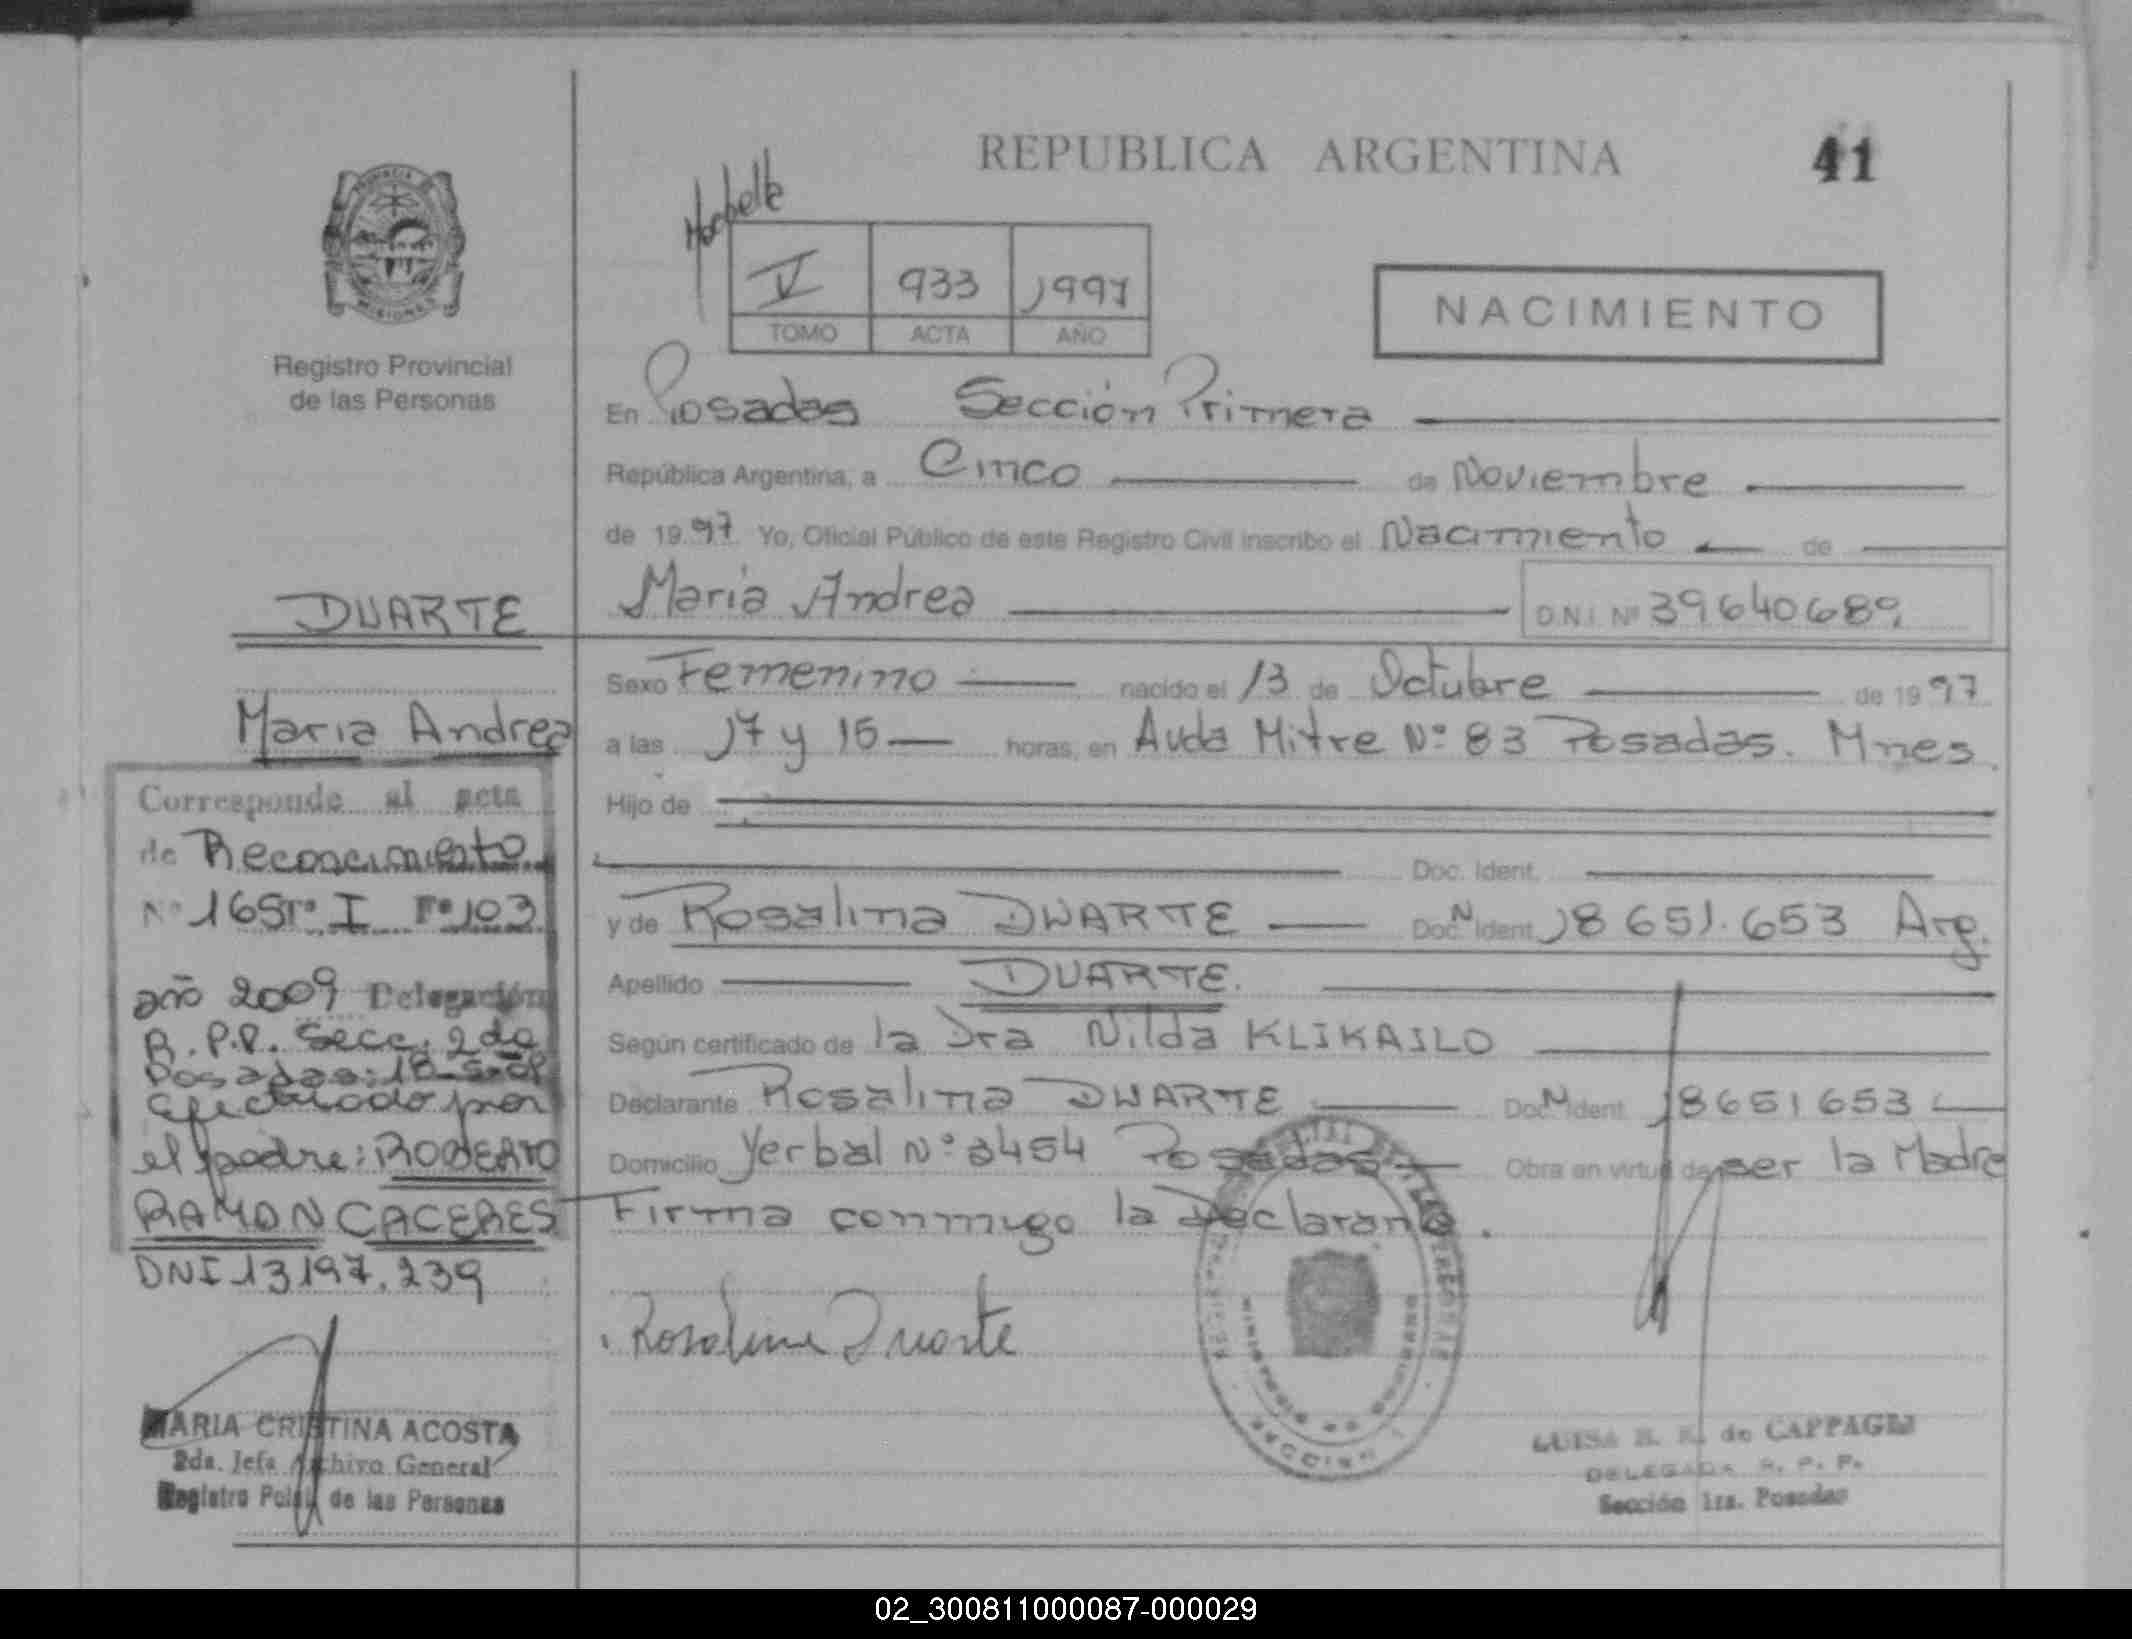 REPUBLICA ARGENTINA
41
V 933 1997
TOMO ACTA AÑO
NACIMIENTO
Registro Provincial
de las Personas
En Posadas Sección Primera
República Argentina, a Cinco de Noviembre
de 1997 Yo, Oficial Público de este Registro Civil inscribo el Nacimiento de
María Andrea D.N.I. Nº 39640689
Sexo Femenino nacido el 13 de Octubre de 1997
a las 17 y 15 horas, en Avda Mitre Nº 83 Posadas. Mnes
Hijo de
Doc. Ident.
y de Rosalina DUARTE Doc. N Ident. 18651.653 Arg.
Apellido DUARTE.
Según certificado de la Dra Nilda KLIKAILO
Declarante Rosalina DUARTE Doc. N Ident. 18651653
Domicilio Yerbal Nº 2454 Posadas Obra en virtud de ser la Madre
Firma conmigo la Declarante.
Rosalina Duarte
LUISA de CAPPAGLI
DELEGADA R. P. P.
Sección 1ra. Posadas
DUARTE
María Andrea
Corresponde al acta
de Reconocimiento
Nº 165 Tº I Fº 103
año 2009 Delegación
R.P.P. Secc. 2da
Posadas:
efectuado por
el padre: ROBERTO
RAMON CACERES
DNI 13197.239
MARIA CRISTINA ACOSTA
2da. Jefa Archivo General
Registro de las Personas
02_300811000087-000029